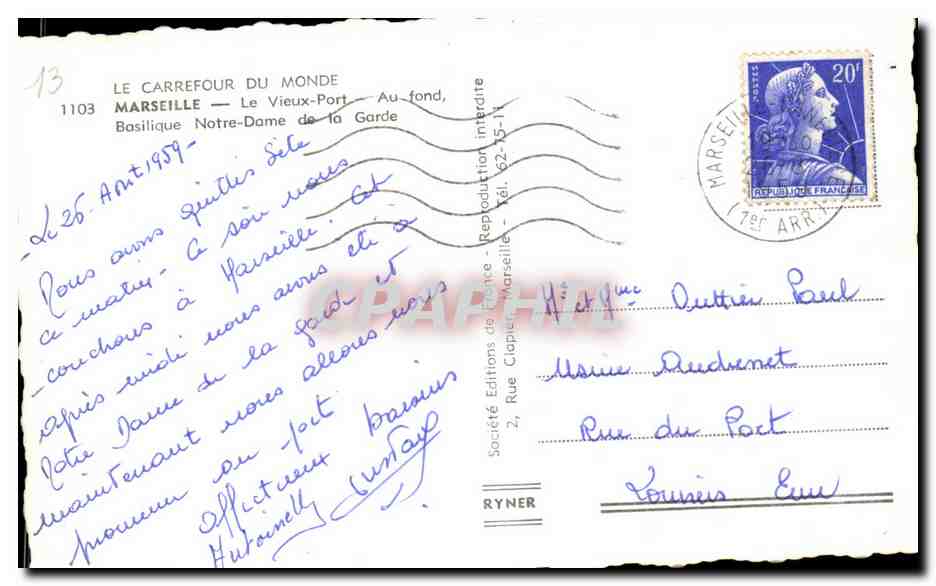 13
LE CARREFOUR DU MONDE
1103 MARSEILLE — Le Vieux-Port - Au fond,
Basilique Notre-Dame de la Garde
Le 26 Août 1959-
Nous avons quittés Sète
ce matin - Ce soir nous
couchons à Marseille Cet
après midi nous avons été à
Notre Dame de la garde et
maintenant nous allons nous
promener au port
Affectueux baisers
Antoinette Gustave
Société Editions de France - Reproduction interdite
2, Rue Clapier, Marseille - Tél. 62-75-11
CPAPHIL
RYNER
POSTES
20F
REPUBLIQUE FRANÇAISE
MARSEILLE
(1er ARRt)
Mr et Mme Duttier Paul
Usine Audresset
Rue du Port
Louviers Eure